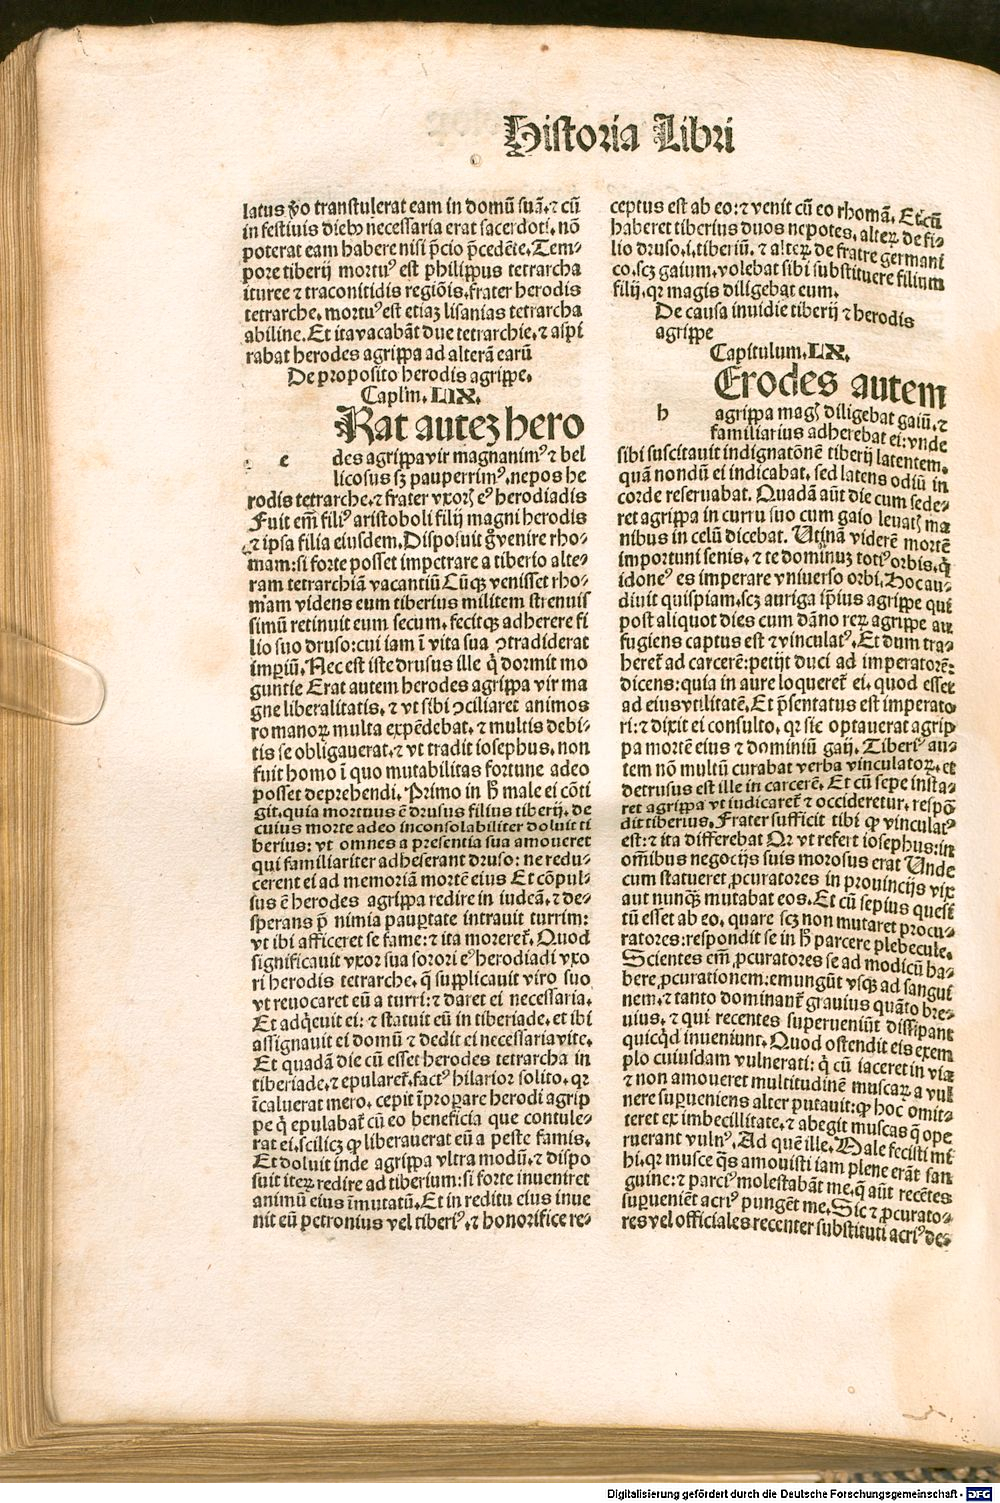 Historia Libri
latus v̄o transtulerat eam in domū suā. ⁊ cū
in festiuis dieb⁹ necessaria erat sacerdoti. nō
poterat eam habere nisi p̄cio p̄cedēte. Tem-
pore tiberij mortu⁹ est philippus tetrarcha
ituree ⁊ traconitidis regiōis. frater herodis
tetrarche. mortu⁹ est etiaꝫ lisanias tetrarcha
abiline. Et ita vacabāt due tetrarchie. ⁊ aspi
rabat herodes agrippa ad alterā earū
De proposito herodis agrippe.
Caplm. LIX.
ERat auteꝫ hero
e des agrippa vir magnanim⁹ ⁊ bel
licosus sꝫ pauperrim⁹. nepos he
rodis tetrarche. ⁊ frater vxoris e⁹ herodiadis
Fuit em̄ fili⁹ aristoboli filij magni herodis
⁊ ipsa filia eiusdem. Disposuit g̊ venire rho-
mam: si forte posset impetrare a tiberio alte-
ram tetrarchiā vacantiū Cūqꝫ venisset rho-
mam videns eum tiberius militem strenuis
simū retinuit eum secum. fecitqꝫ adherere fi
lio suo druso: cui iam ī vita sua ꝯtradiderat
impiū. Nec est iste drusus ille q̇ dormit mo
guntie Erat autem herodes agrippa vir ma
gne liberalitatis. ⁊ vt sibi ꝯciliaret animos
romanoꝝ multa expēdebat. ⁊ multis debi-
tis se obligauerat. ⁊ vt tradit iosephus. non
fuit homo ī quo mutabilitas fortune adeo
posset deprehendi. Primo in h̄ male ei cōti
git. quia mortuus ē drusus filius tiberij. de
cuius morte adeo inconsolabiliter doluit ti
berius: vt omnes a presentia sua amoueret
qui familiariter adheserant druso: ne redu-
cerent ei ad memoriā mortē eius Et cōpul-
sus ē herodes agrippa redire in iudeā. ⁊ de-
sperans p̄ nimia paupꝑtate intrauit turrim:
vt ibi afficeret se fame: ⁊ ita morereť. Quod
significauit vxor sua sorori e⁹ herodiadi vxo
ri herodis tetrarche. q̄ supplicauit viro suo
vt reuocaret eū a turri: ⁊ daret ei necessaria.
Et adq̇euit ei: ⁊ statuit eū in tiberiade. et ibi
assignauit ei domū ⁊ dedit ei necessaria vite.
Et quadā die cū esset herodes tetrarcha in
tiberiade. ⁊ epulareť. fact⁹ hilarior solito. qꝛ
īcaluerat mero. cepit īproꝑare herodi agrip
pe q̇ epulabať cū eo beneficia que contule-
rat ei. scilicꝫ ꝙ liberauerat eū a peste famis.
Et doluit inde agrippa vltra modū. ⁊ dispo
suit iteꝝ redire ad tiberium: si forte inueniret
animū eius īmutatū. Et in reditu eius inue
nit eū petronius vel tiberi⁹. ⁊ honorifice re-
ceptus est ab eo: ⁊ venit cū eo rhomā. Et cū
haberet tiberius duos nepotes. alteꝝ de fi-
lio druso. i. tiberiū. ⁊ alteꝝ de fratre germani
co. scꝫ gaium. volebat sibi substituere filium
filij. qꝛ magis diligebat eum.
De causa inuidie tiberij ⁊ herodis
agrippe
Capitulum. LX.
HErodes autem
h agrippa magꝭ diligebat gaiū. ⁊
familiarius adherebat ei: vnde
sibi suscitauit indignatōnē tiberij latentem.
quā nondū ei indicabat. sed latens odiū in
corde reseruabat. Quadā aūt die cum sede-
ret agrippa in curru suo cum gaio leuatꝭ ma
nibus in celū dicebat. Utinā viderē mortē
importuni senis. ⁊ te dominuꝫ toti⁹ orbis. q̇
idone⁹ es imperare vniuerso orbi. Hoc au-
diuit quispiam. scꝫ auriga ip̄ius agrippe qui
post aliquot dies cum dāno reꝝ agrippe au
fugiens captus est ⁊ vinculat⁹. Et dum tra-
hereť ad carcerē: petijt duci ad imperatorē:
dicens: quia in aure loquereť ei. quod esset
ad eius vtilitatē. Et p̄sentatus est imperato
ri: ⁊ dixit ei consulto. qꝛ sic optauerat agrip
pa mortē eius ⁊ dominiū gaij. Tiberi⁹ au-
tem nō multū curabat verba vinculatoꝝ. et
detrusus est ille in carcerē. Et cū sepe insta-
ret agrippa vt iudicareť ⁊ occideretur. respō
dit tiberius. Frater sufficit tibi ꝙ vinculat⁹
est: ⁊ ita differebat Qꝛ vt refert iosephus: in
om̄ibus negocijs suis morosus erat Unde
cum statueret ꝓcuratores in prouincijs vix
aut nunqꝫ mutabat eos. Et cū sepius quesiť
tū esset ab eo. quare scꝫ non mutaret procu-
ratores: respondit se in h̄ parcere plebecule.
Scientes em̄ ꝓcuratores se ad modicū ha-
bere ꝓcurationem: emungūt vsqꝫ ad sangui
nem. ⁊ tanto dominanť grauius quāto bre-
uius. ⁊ qui recentes superueniūt dissipant
quicq̇d inueniunt. Quod ostendit eis exem
plo cuiusdam vulnerati: q̇ cū iaceret in via
⁊ non amoueret multitudinē muscaꝝ a vul
nere suꝑueniens alter putauit: ꝙ hoc omit-
teret ex imbecillitate. ⁊ abegit muscas q̄ ope
ruerant vuln⁹. Ad quē ille. Male fecisti mi
hi. qꝛ musce q̄s amouisti iam plene erāt san
guine: ⁊ parci⁹ molestabāt me. q̄ aūt recētes
suꝑuenient acri⁹ pungēt me. Sic ⁊ ꝓcurato-
res vel officiales recenter substituti acri⁹ de-
Digitalisierung gefördert durch die Deutsche Forschungsgemeinschaft - DFG